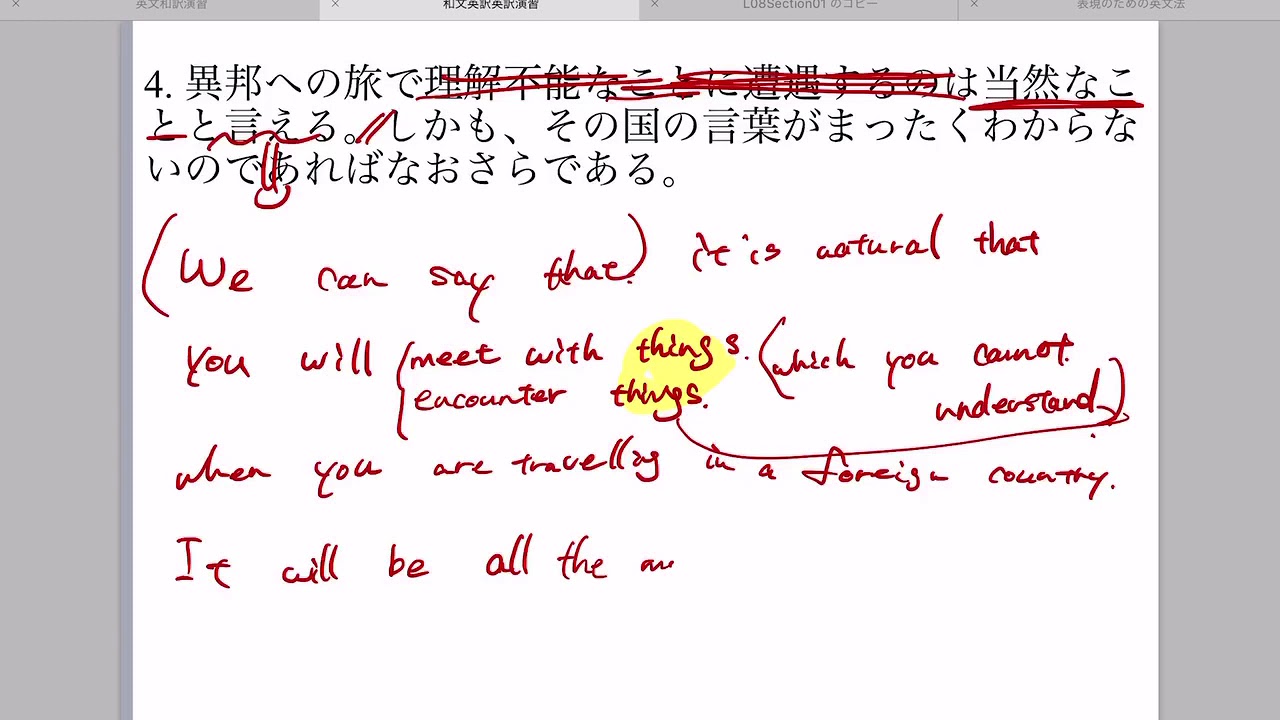 英文和訳演習
和文英訳英訳演習
L08Section01 のコピー
表現のための英文法
4. 異邦への旅で理解不能なことに遭遇するのは当然なこ
とと言える。しかも、その国の言葉がまったくわからな
いのであればなおさらである。
(We can say that) it is natural that
you will meet with things. (which you cannot
encounter things. understand)
when you are travelling in a foreign country.
It will be all the